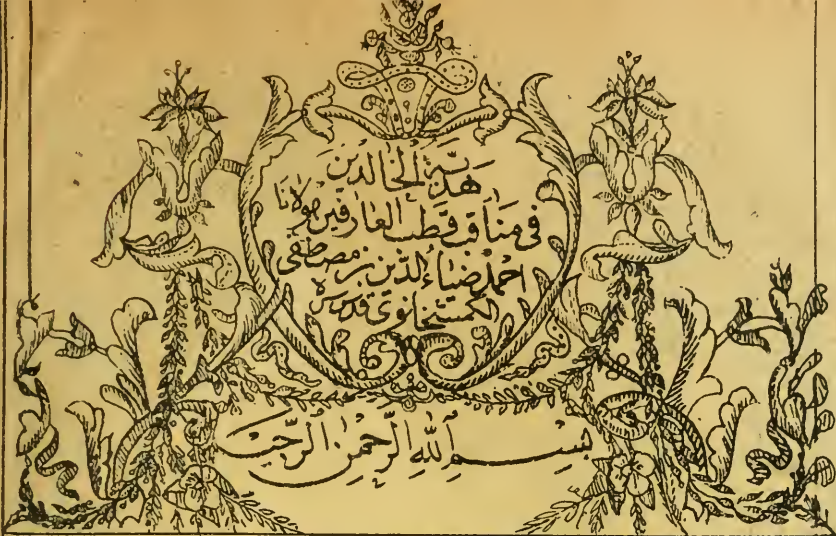 هدية الخالدين
في مناقب قطب العارفين مولانا
احمد ضياء الدين بن مصطفى
الكمشخانوى قدس سره
بِسْمِ اللهِ الرَّحْمٰنِ الرَّحِيمِ